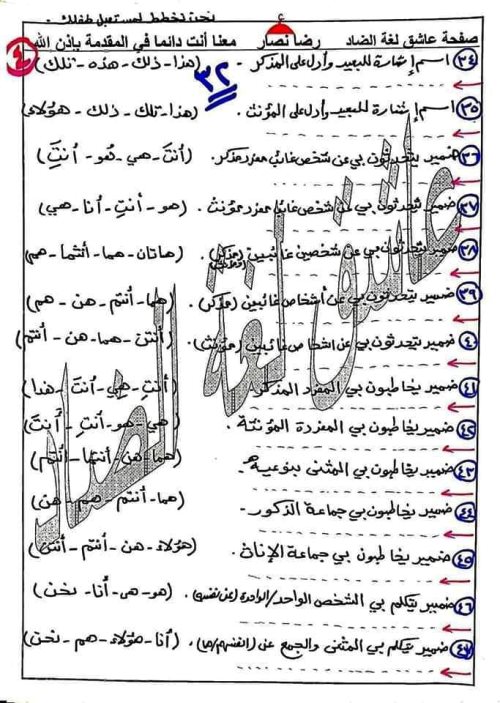 نحن نخطط لمستقبل طفلك.
٤
صفحة عاشق لغة الضاد رضا نصار معنا أنت دائما في المقدمة بإذن الله
٤
٣٢
٣٤ اسم إشارة للبعيد وأدل على المذكر. (هذا - ذلك - هذه - تلك)
٣٥ اسم إشارة للبعيد وأدل على المؤنث. (هذا - تلك - ذلك - هؤلاء)
٣٦ ضمير يتحدثون بي عن شخص غائب مفرد مذكر. (أنتَ - هي - هو - أنتِ)
٣٧ ضمير يتحدثون بي عن شخص غائب مفرد مؤنث. (هو - أنتِ - أنا - هي)
٣٨ ضمير يتحدثون بي عن شخصين غائبين (مذكر) (هاتان - هما - أنتما - هم)
٣٩ ضمير يتحدثون بي عن أشخاص غائبين (مذكر). (هما - أنتم - هن - هم)
٤٠ ضمير يتحدثون بي عن اشخاص غائبين (مؤنث). (أنتن - هما - هن - أنتم)
٤١ ضمير يخاطبون بي المفرد المذكر (أنتِ - هي - أنتَ - هذا)
٤٢ ضمير يخاطبون بي المفردة المؤنثة. (هي - هو - أنتِ - أنتَ)
٤٣ ضمير يخاطبون بي المثنى بنوعيه (هما - هن - أنتما - أنتم)
٤٤ ضمير يخاطبون بي جماعة الذكور. (هما - أنتم - هم - هن)
٤٥ ضمير يخاطبون بي جماعة الإناث. (هؤلاء - هن - أنتم - أنتن)
٤٦ ضمير يتكلم بي الشخص الواحد/الواحدة (عن نفسه) (هو - هي - أنا - نحن)
٤٧ ضمير يتكلم بي المثنى والجمع عن (أنفسهم/هما) (أنا - هؤلاء - هم - نحن)
عاشق لغة الضاد